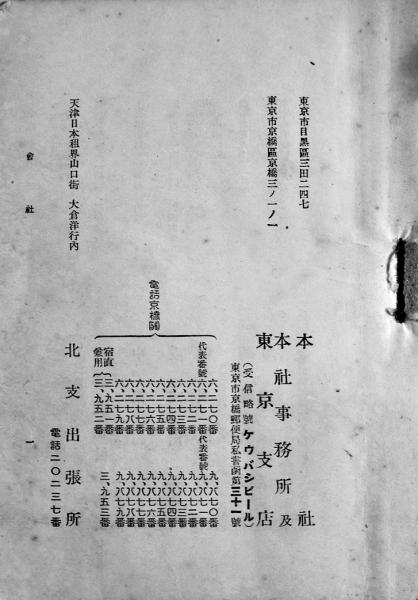 東京市目黒區三田二四七
本社
東京市京橋區京橋三ノ一ノ一
本社事務所及
東京支店
(受信略號ケウバシビール)
東京市京橋郵便局私書函第三十一號
電話京橋(56)
代表番號 六、二七〇番
六、二七一番
六、二七二番
六、二七三番
六、二七四番
六、二七五番
六、二七六番
六、二七七番
六、二七八番
六、二七九番
宿直 三、九五一番
兼用 三、九五二番
代表番號 九、八七〇番
九、八七一番
九、八七二番
九、八七三番
九、八七四番
九、八七五番
九、八七六番
九、八七七番
九、八七八番
九、八七九番
三、九五三番
天津日本租界山口街 大倉洋行内
北支出張所
電話二・〇二三七番
會社
一